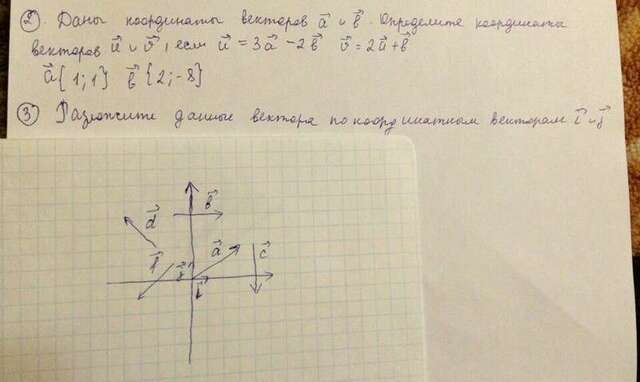 ② Даны координаты векторов a⃗ и b⃗. Определите координаты
векторов u⃗ и v⃗, если u⃗ = 3a⃗ - 2b⃗ v⃗ = 2u⃗ + b⃗
a⃗ {1; 1} b⃗ {2; -8}
③ Разложите данные вектора по координатным векторам i⃗ и j⃗
b⃗
d⃗
a⃗
c⃗
f⃗
j⃗
i⃗